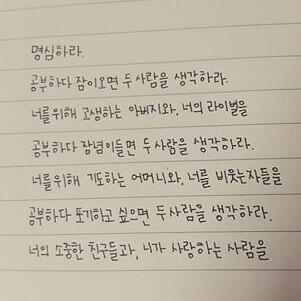 명심하라.
공부하다 잠이오면 두사람을 생각하라.
너를위해 고생하는 아버지와, 너의 라이벌을
공부하다 잡념이들면 두사람을 생각하라.
너를위해 기도하는 어머니와, 너를 비웃는자들을
공부하다 포기하고 싶으면 두사람을 생각하라.
너의 소중한 친구들과, 니가 사랑하는 사람을